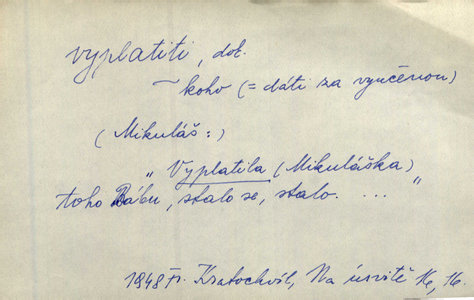 vyplatiti, dok.
~ koho (= dáti za vyučenou)
(Mikuláš:)
„Vyplatila (Mikuláška)
toho Rábu, stalo se, stalo. ...."
1948 Fr. Kratochvíl, Na úsvitě 16, 16.